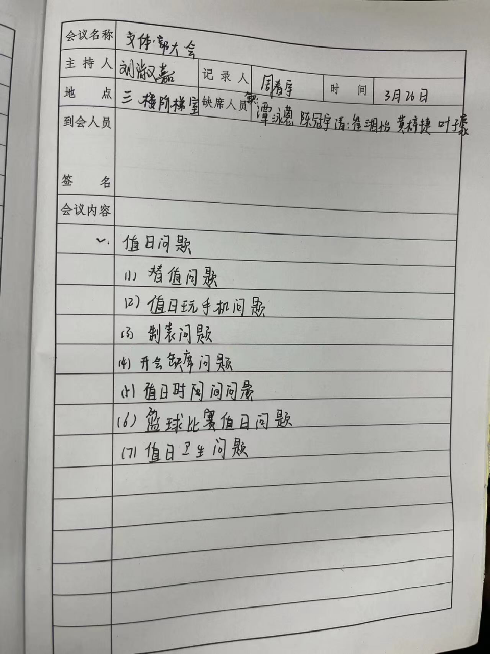 会议名称 文体部大会
主持人 刘淑汉嘉 记录人 周春宇 时间 3月26日
地点 三楼阶梯室 缺席人员 缺:谭泳蒽 陈冠宇 请:崔湘怡 黄梓捷 叶子豪
到会人员
签名
会议内容
一. 值日问题
(1) 替值问题
(2) 值日玩手机问题
(3) 制表问题
(4) 开会缺席问题
(5) 值日时间问问题
(6) 篮球比赛值日问题
(7) 值日卫生问题